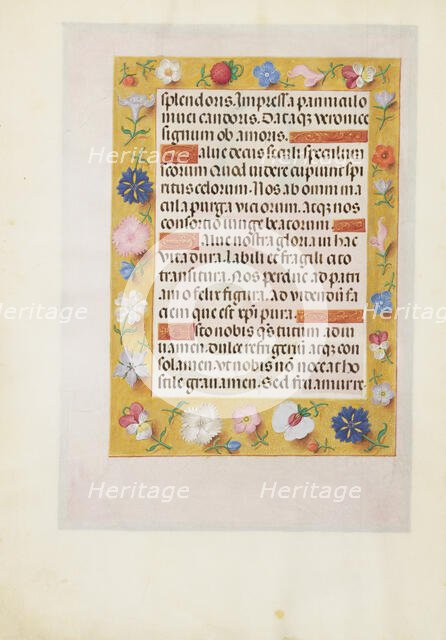 splendoris. Impressa panniculo
niuei candoris. Dataqz veronice
signum ob amoris.
Salue decus seculi speculum
scorum Quod uidere cupiunt spi
ritus celorum. Nos ab omni ma
cula purga viciorum. Atqz nos
consortio iunge beatorum.
Salue nostra gloria in hac
vita dura. Labili et fragili cito
transitura. Nos perduc ad patri
am o felix figura. Ad videndū fa
ciem que est xpi pura.
Esto nobis qs tutum adiu
uamen. dulce refrigeriū atqz con
solamen. Vt nobis nō noceat ho
stile grauamen. Sed fruamur re
Heritage Heritage Heritage
Heritage Heritage
Heritage Heritage Heritage